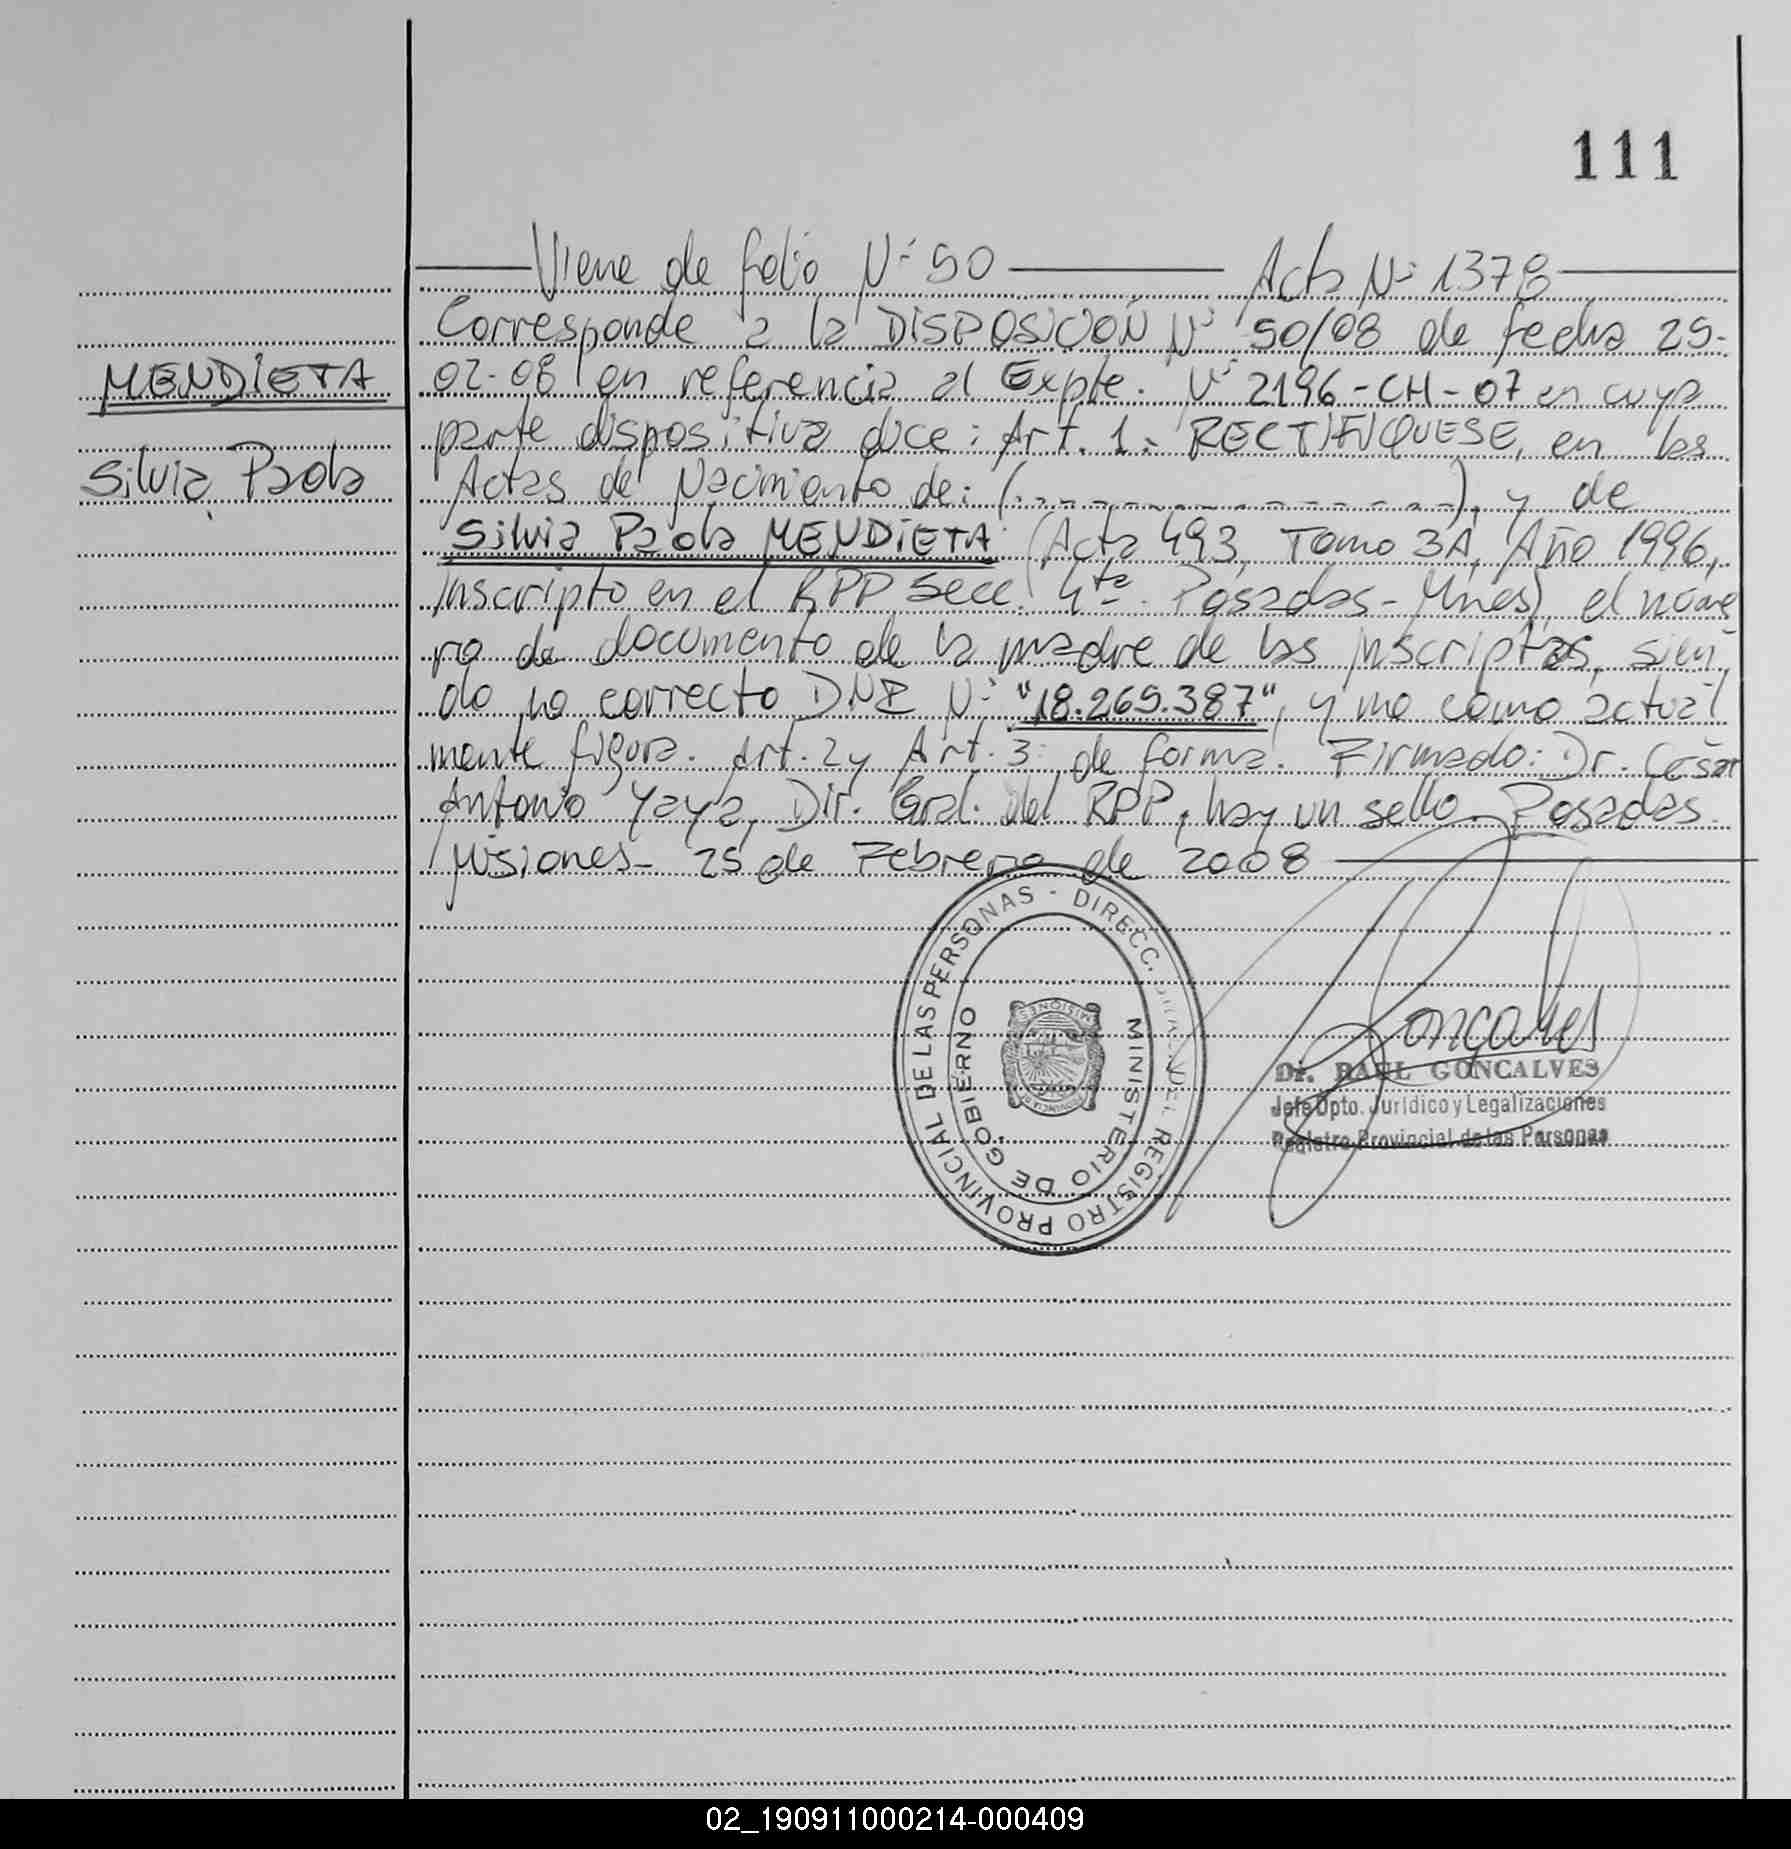 111
Viene de folio Nº 50 Acta Nº 1378
Corresponde a la DISPOSICIÓN Nº 50/08 de fecha 25-
MENDIETA
02-08 en referencia al Expte. Nº 2196-CH-07 en cuya
parte dispositiva dice: Art. 1: RECTIFIQUESE, en las
Silvia Paola
Actas de Nacimiento de: (------------------), y de
Silvia Paola MENDIETA (Acta 493, Tomo 3A, Año 1996,
Inscripto en el RPP Secc. 4ta. Posadas-Mnes), el núme
ro de documento de la madre de las inscriptas, sien
do lo correcto DNI Nº "18.269.387", y no como actual
mente figura. Art. 2 y Art. 3: de forma. Firmado: Dr. César
Antonio Yaya, Dir. Gral. del RPP, hay un sello. Posadas
Misiones- 25 de Febrero de 2008
REGISTRO PROVINCIAL DE LAS PERSONAS - DIRECC. GRAL. DEL
MINISTERIO DE GOBIERNO
PROVINCIA DE MISIONES
Goncalves
Dr. RAUL GONCALVES
Jefe Dpto. Jurídico y Legalizaciones
Registro Provincial de las Personas
02_190911000214-000409